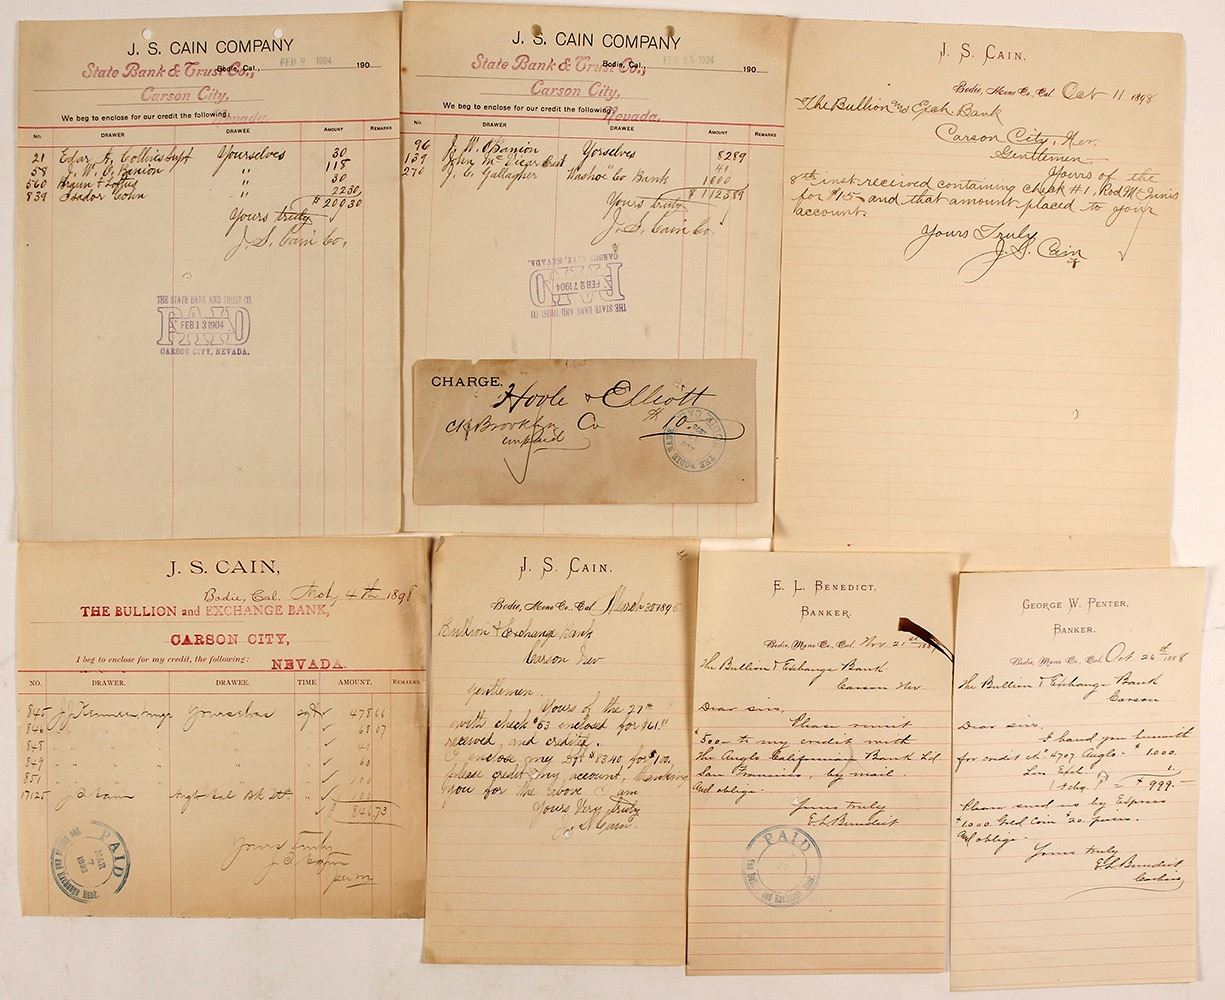 J. S. CAIN COMPANY
Bodie, Cal., FEB 9 1904 190
State Bank & Trust Co.,
Carson City,
Nevada.
We beg to enclose for our credit the following:
No. DRAWER DRAWEE AMOUNT REMARKS
21 Edgar A. Collins Supt Yourselves 30
58 J. W. O'Banion " 118
560 " 30
839 Isador Cohn " 2230
$ 20030
Yours truly
J. S. Cain Co.
THE STATE BANK AND TRUST CO.
PAID
FEB 13 1904
CARSON CITY, NEVADA.
J. S. CAIN COMPANY
Bodie, Cal., 1904 190
State Bank & Trust Co.,
Carson City,
Nevada.
We beg to enclose for our credit the following:
No. DRAWER DRAWEE AMOUNT REMARKS
96 J. W. O'Banion Yorselves 8289
139 John McVicar 41
270 J. C. Gallagher Washoe Co Bank 1000
$ 112389
Yours truly
J. S. Cain Co.
THE STATE BANK AND TRUST CO
PAID
FEB 27 1904
CARSON CITY, NEVADA.
CHARGE.
Hoole & Elliott
Ck Brooklyn Co $10.
unpaid
THE BODIE
J. S. CAIN.
Bodie, Mono Co. Cal Oct 11 1898
The Bullion and Exch. Bank
Carson City, Nev.
Gentlemen
Yours of the
8th inst received containing check #1, Rod McInnis
for $15 and that amount placed to your
account.
Yours Truly
J. S. Cain
J. S. CAIN,
Bodie, Cal. 4th 1898
THE BULLION and EXCHANGE BANK,
CARSON CITY,
NEVADA.
I beg to enclose for my credit, the following:
NO. DRAWER. DRAWEE. TIME. AMOUNT. REMARKS
845 Yourselves sight 47866
846 " " " 6807
848 " " " 40
849 " " " 60
851 " " " 100
17125 J S Cain 100
84673
Yours Truly
J S Cain
PAID
MAR
7
The Bullion and Exchange Bank.
J. S. CAIN.
Bodie, Mono Co. Cal March 30 1895
Bullion & Exchange Bank
Carson Nev
Gentlemen.
Yours of the 27th
with check #53 enclosed for $61
received and credited.
I enclose my Dft #8340 for $100,
please credit my account, thanking
you for the above I am
Yours Very Truly
J. S. Cain
E. L. BENEDICT,
BANKER.
Bodie, Mono Co., Cal. Nov. 21st 188
The Bullion & Exchange Bank
Carson Nev.
Dear sirs,
Please remit
$500 to my credit with
The Anglo Californian Bank Ld
San Francisco, by mail
and oblige
Yours truly
E L Benedict
PAID
The Bullion and Exchange Bank.
GEORGE W. PENTER,
BANKER.
Bodie, Mono Co., Cal. Oct 26th 1888
The Bullion & Exchange Bank
Carson
Dear sirs,
I hand you herewith
for credit No 4707 Anglo $1000.
Less Exch. 1
$999.
Please send us by Express
$1000 Gold Coin $20 pieces.
and oblige
Yours truly
E L Benedict